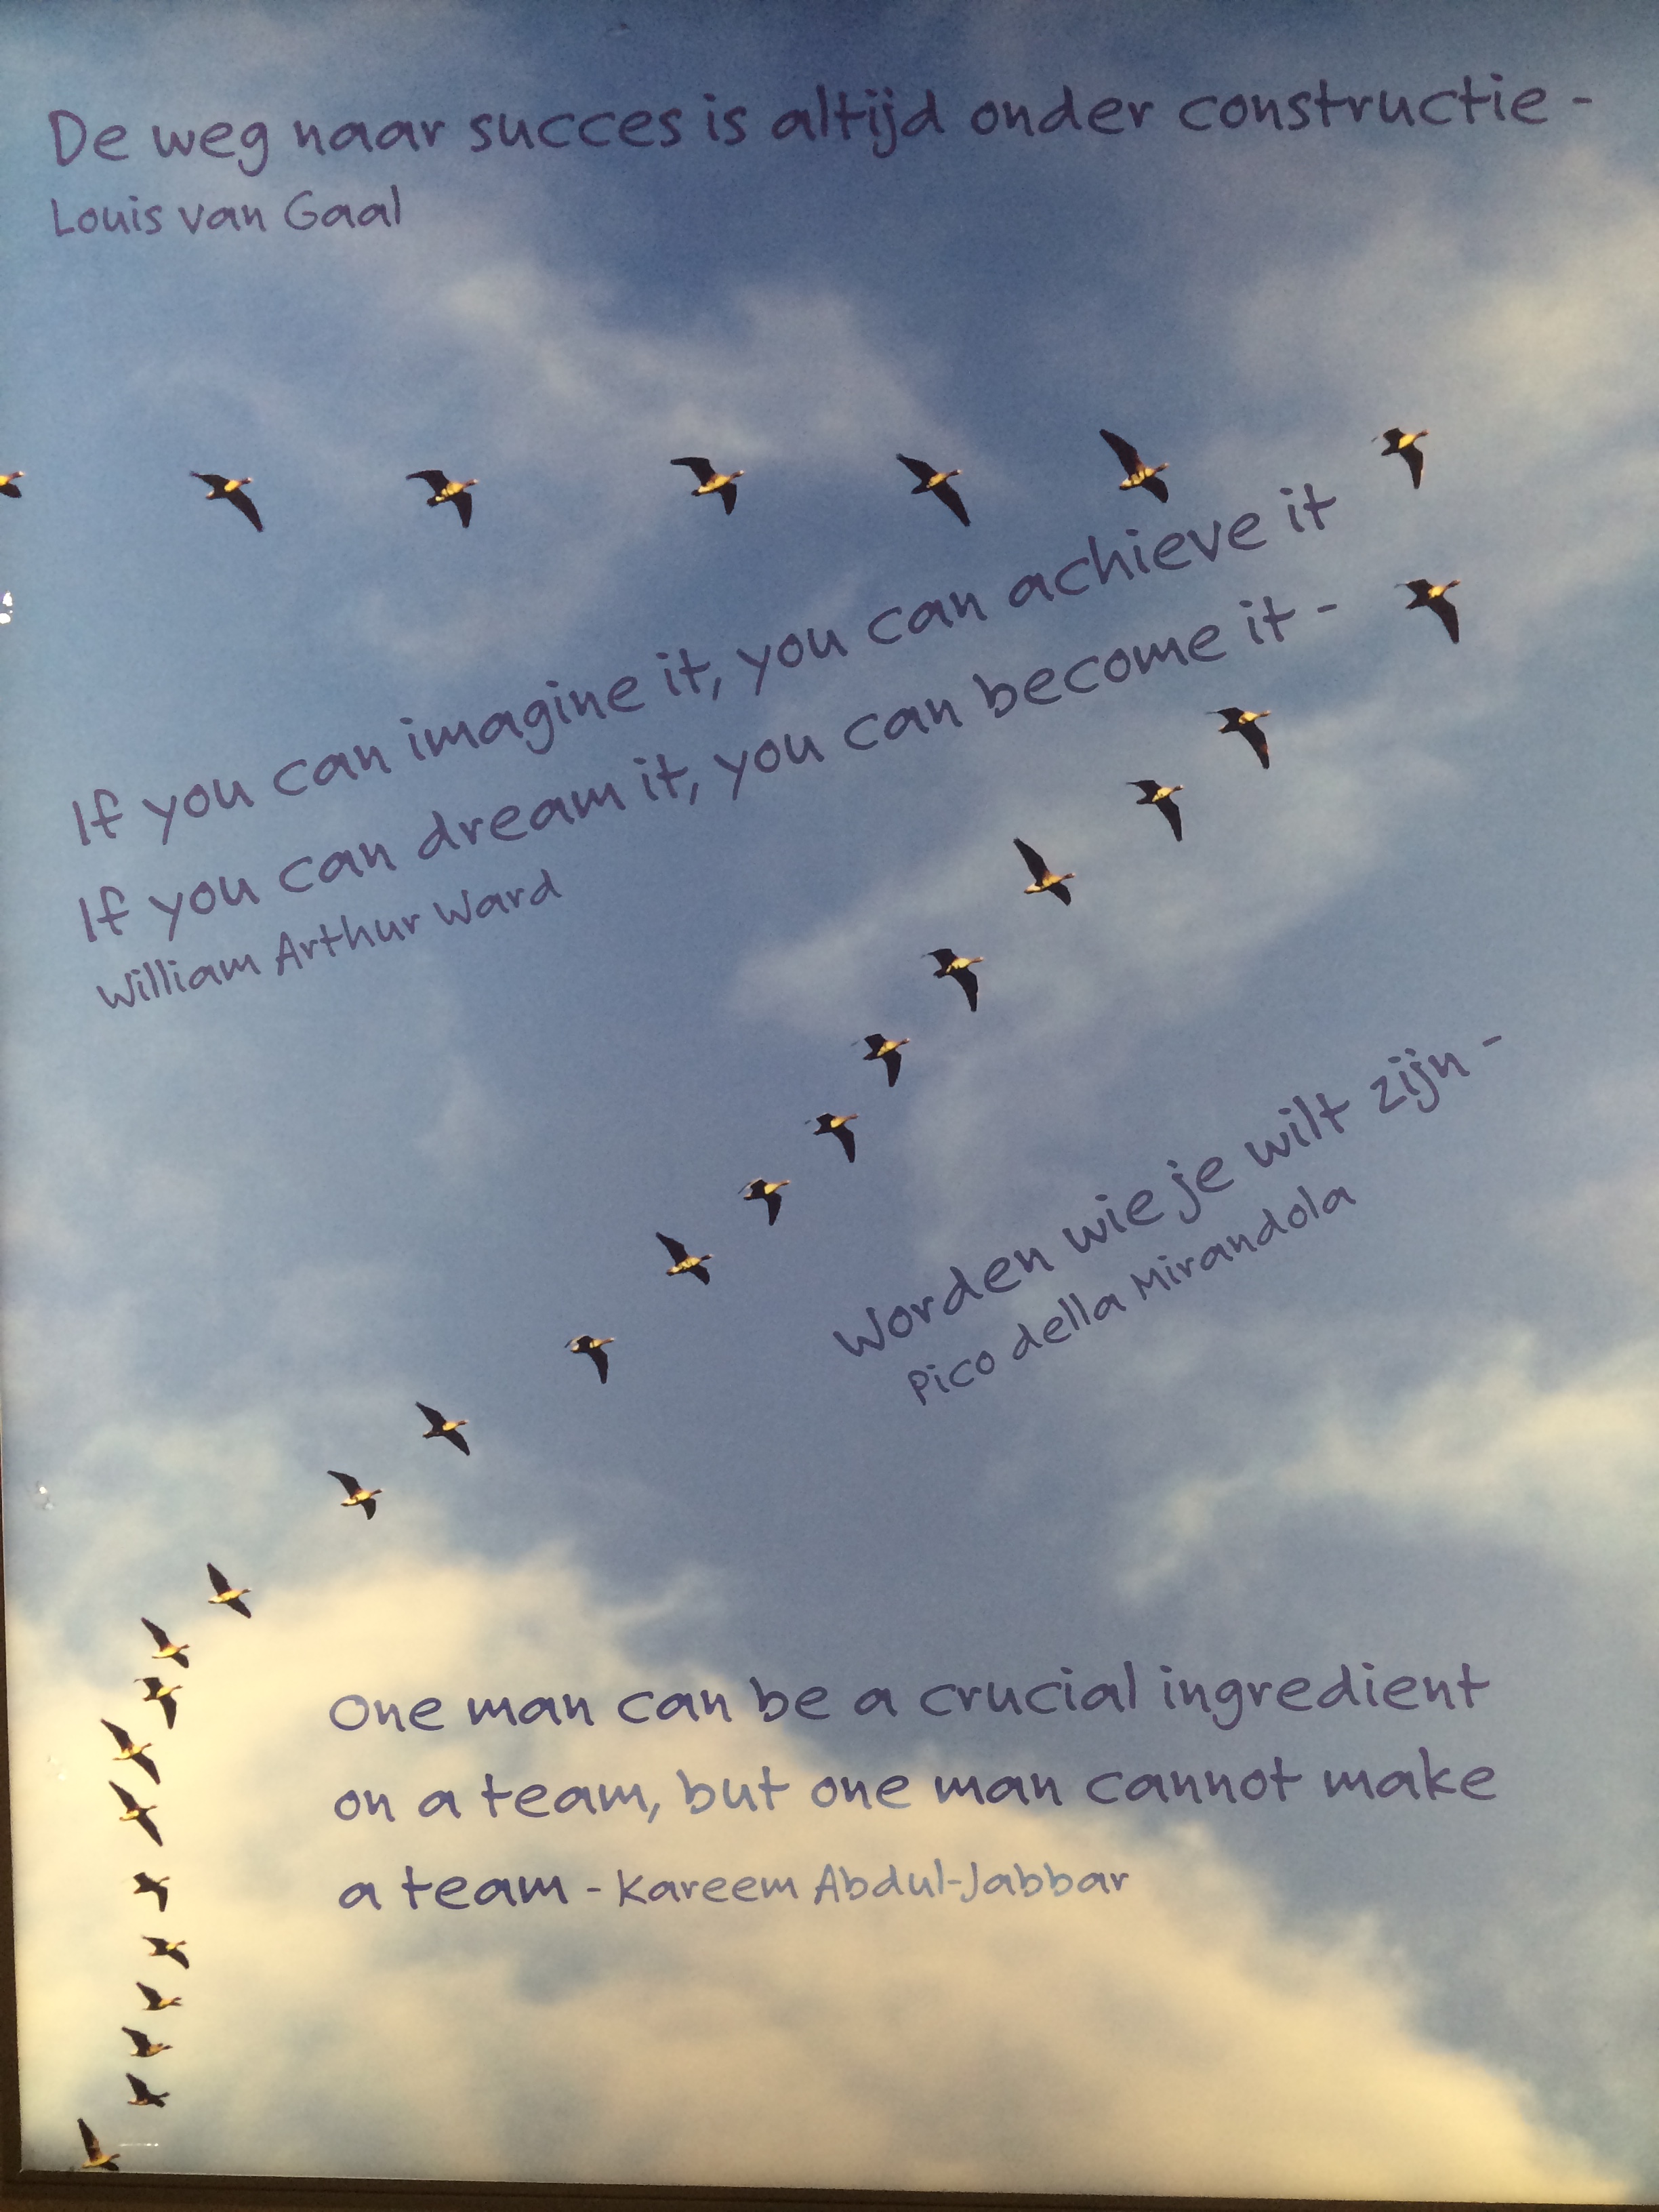 De weg naar succes is altijd onder constructie -
Louis van Gaal
If you can imagine it, you can achieve it
If you can dream it, you can become it -
William Arthur Ward
Worden wie je wilt zijn -
Pico della Mirandola
One man can be a crucial ingredient
on a team, but one man cannot make
a team - Kareem Abdul-Jabbar